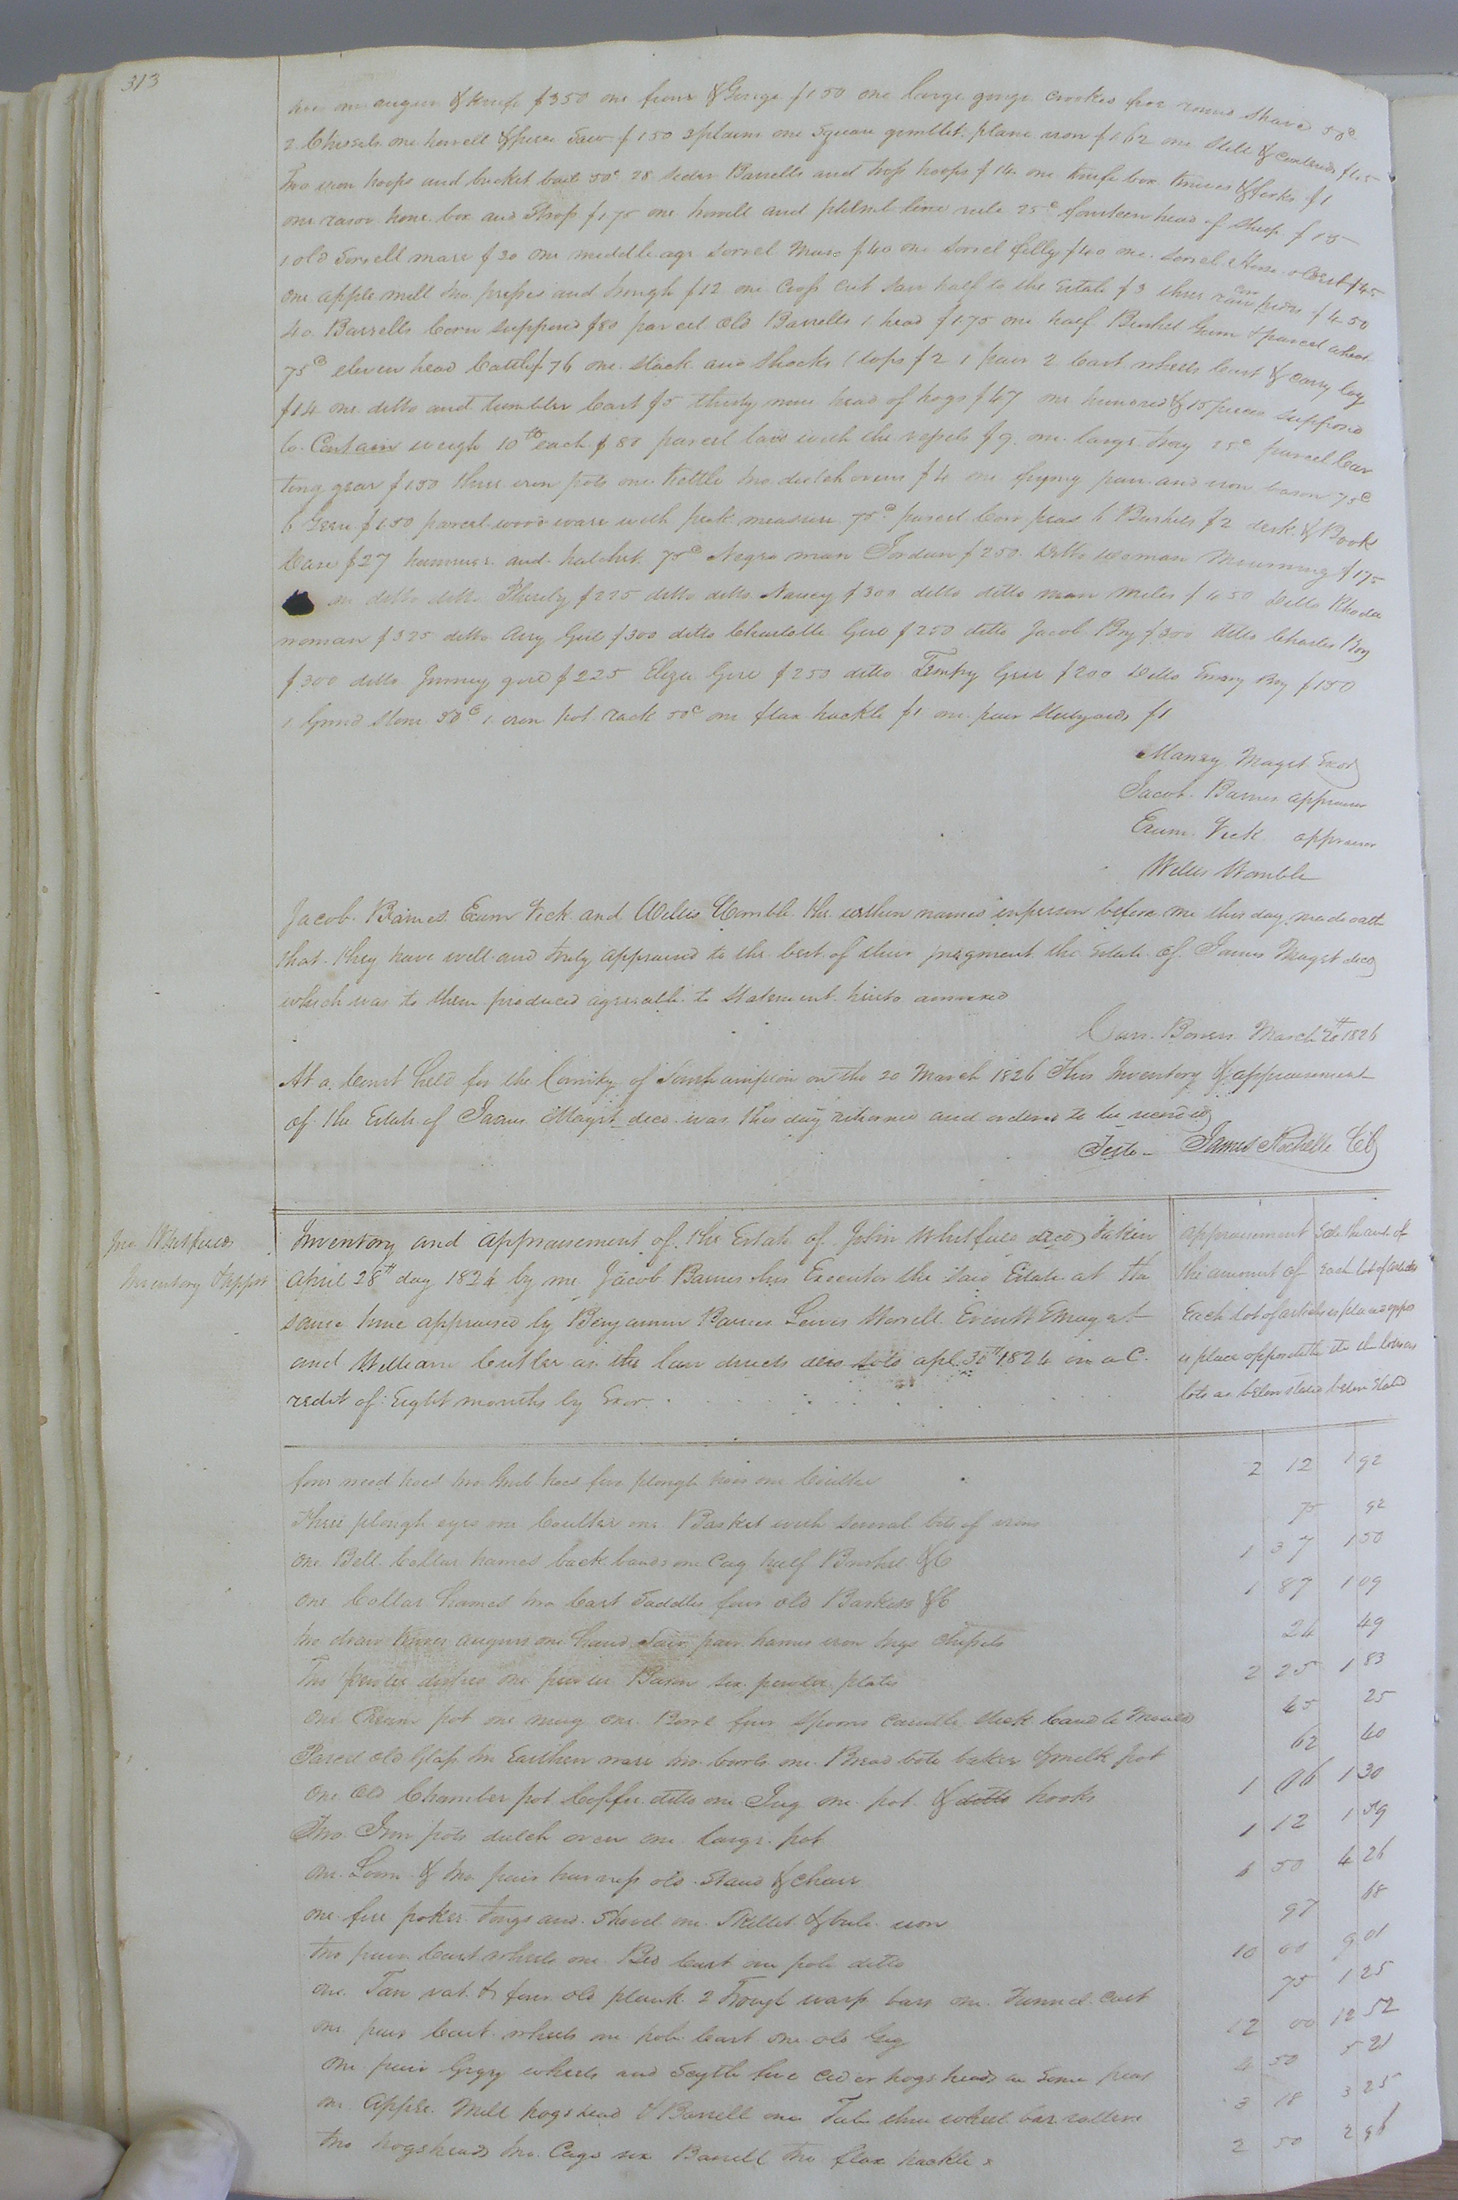 313
hoe one auger & knife $3 50 one frow & Gouge $1 50 one large gouge crooked froe round shave 50c
2 Chissels one howell & piece Saw $1 50 3 plains one Square gimblet plane iron $1 62 one Still & $45
Two iron hoops and bucket bail 50c 28 sider Barrells and trus hoops $14 one knife box knives & forks $1
one rasor hone box and Strop $1 75 one howell and line reele 25c fourteen head of Sheep $18
1 old Sorrell mare $30 one middle age Sorrel Mare $40 one Sorrel filly $40 one Sorrel Horse $45
one apple mill two presses and trough $12 one Cross Cut Saw half to the Estate $3 three $4 50
40 Barrells Corn supposed $80 parcel old Barrells 1 head $1 75 one half Bushel Gum & parcel wheat
75c eleven head Cattle $76 one stack and shocks tops $2 1 pair 2 Cart wheels Cart & Carry log
$14 one ditto and tumbler Cart $5 thirty nine head of hogs $47 one hundred & 15 pieces supposed
to Contain weigh 10lb each $80 parcel lard with the vessels $9 one large tray 25c parcel Car
ting gear $1 50 three iron pots one kettle two dutch ovens $4 one frying pan and iron bason 75c
6 Geese $1 50 parcel wood ware with peck measure 75c parcel Cow peas 6 Bushels $2 desk & Book
Case $27 hammer and hatchet 75c Negro man Jordan $250 Ditto woman Mourning $175
ditto ditto $225 ditto ditto Nancy $300 ditto ditto man Miles $450 Ditto Rhoda
woman $325 ditto Airy Girl $300 ditto Charlotte Girl $250 ditto Jacob Boy $300 ditto Charles Boy
$300 ditto girl $225 Eliza Girl $250 ditto Tempy Girl $200 Ditto Emory Boy $150
1 Grind Stone 50c 1 iron pot rack 50c one flax hackle $1 one pair Stilyards $1
Magst Exor
Jacob Barnes appraiser
Exum Vick appraiser
Willis Womble
Jacob Barnes Exum Vick and Willis Womble the within named in person before me this day made oath
that they have well and truly appraised to the best of their jugment the Estate of James Magst decd
which was to them produced agreeable to Statement hereto annexed
Carr Bowers March 20th 1826
At a Court held for the County of Southampton on the 20 March 1826 This Inventory & appraisement
of the Estate of James Magst decd was this day returned and ordered to be recorded
Teste — James Rochelle CC
Jno Whitfields
Inventory & appst
Inventory and appraisement of the Estate of John Whitfield decd taken
April 28th day 1824 by me Jacob Barnes his Executor the said Estate at the
same time appraised by Benjamin Barnes Lewis Worrell Everett Magst
and William Cutler as the law directs also sold apl 30th 1824 on a C
redit of Eight months by Exor
appraisement
the amount of
Each lot of articles
is place opposite the
lots as below stated
Sale the amt of
each lot of articles
is placed oppo
site to the lots as
below stated
four weed hoes two Grub hoes five plough hoes one Coulter 2 12 1 92
Three plough eyes one Coulter one Basket with several bits of irons 75 92
One Bell Collar hames back bands one Cag half Bushel &C 1 37 1 50
One Collar hames two Cart Saddles four old Baskets &C 1 87 1 09
two draw knives augurs one hand Saw pair hames iron chissels 24 49
Two pewter dishes one pewter Bason six pewter plates 2 25 1 83
One Cream pot one mug one Bowl four spoons candle stick Candle Moulds 65 25
Parcel old Glass tin Earthen ware two bowls one Bread baker & milk pot 62 60
One old Chamber pot Coffee ditto one Jug one pot & ditto hooks 1 06 1 30
Two Iron pots dutch oven one large pot 1 12 1 59
one Loom & two pair harness old Stand & chair 6 50 4 26
one fire poker tongs and Shovel one Skillet & iron 97 68
two pair Cart wheels one Bed Cart one pole ditto 10 00 9 01
one Tan vat & four old plank 2 Trough warp bars one Tunnel 75 1 25
one pair Cart wheels one pole Cart one old Gig 12 00 12 52
one pair Gigg wheels and Scythe five Cider hogsheads 4 50 5 21
one Apple Mill hogshead & Barrell one Tub three wheel 3 18 3 25
two hogsheads two Cags six Barrell two flax hackles 2 50 2 96